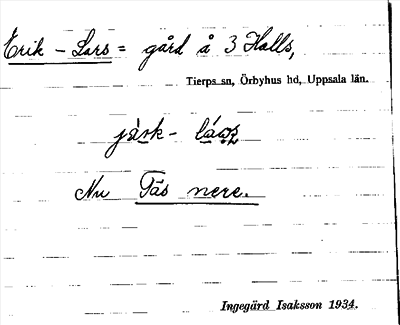 Erik - Lars = gård å 3 Halls,
Tierps sn, Örbyhus hd, Uppsala län.
Nu Fäs nere.
Ingegärd Isaksson 1934.